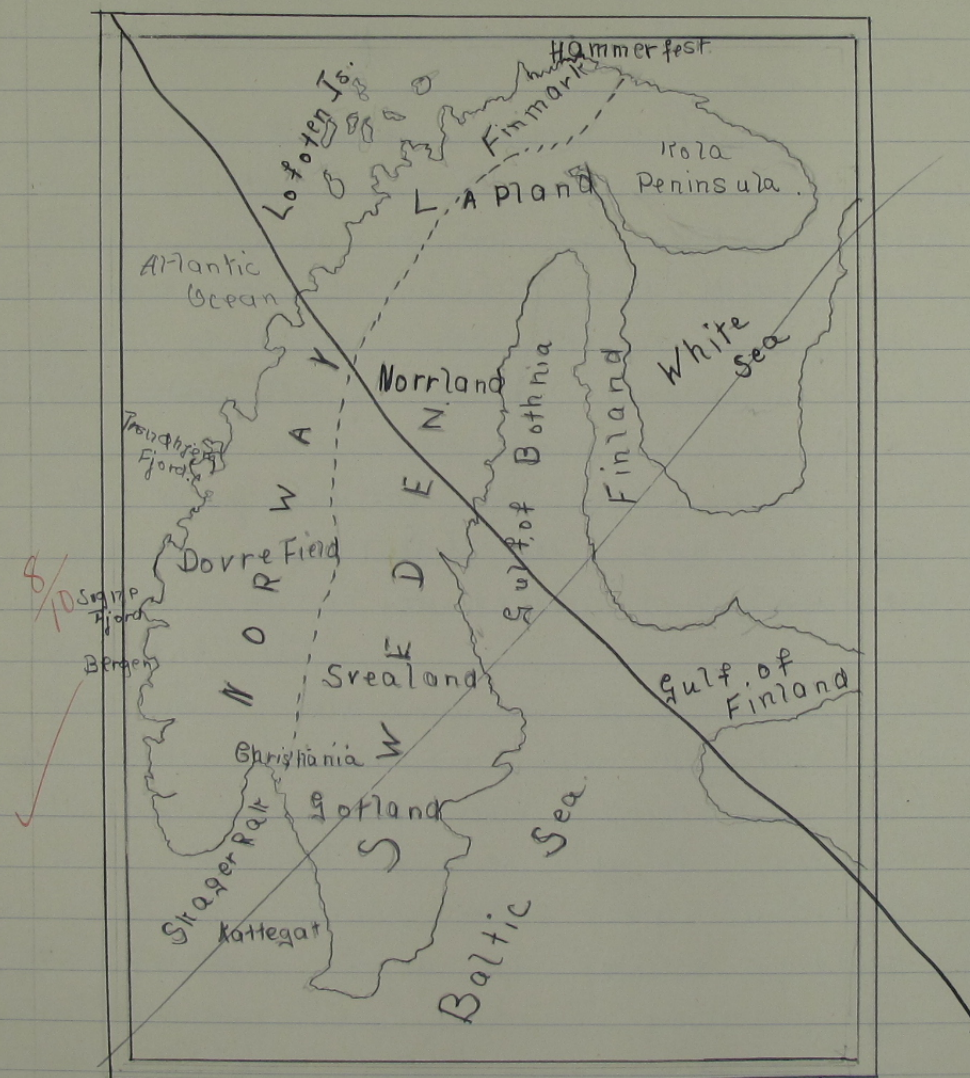 Hammerfest.
Lofoten Is.
Finmark
Kola
Peninsula.
LAPland
Atlantic
Ocean
White
Sea
Norrland
Gulf of Bothnia
Finland
NORWAY
SWEDEN
Fjord.
Dovre Field
8/10
Fjord
Bergen
Srealand
Gulf of
Finland
Christiania
Gotland
Skager Rak
Kattegat
Baltic Sea